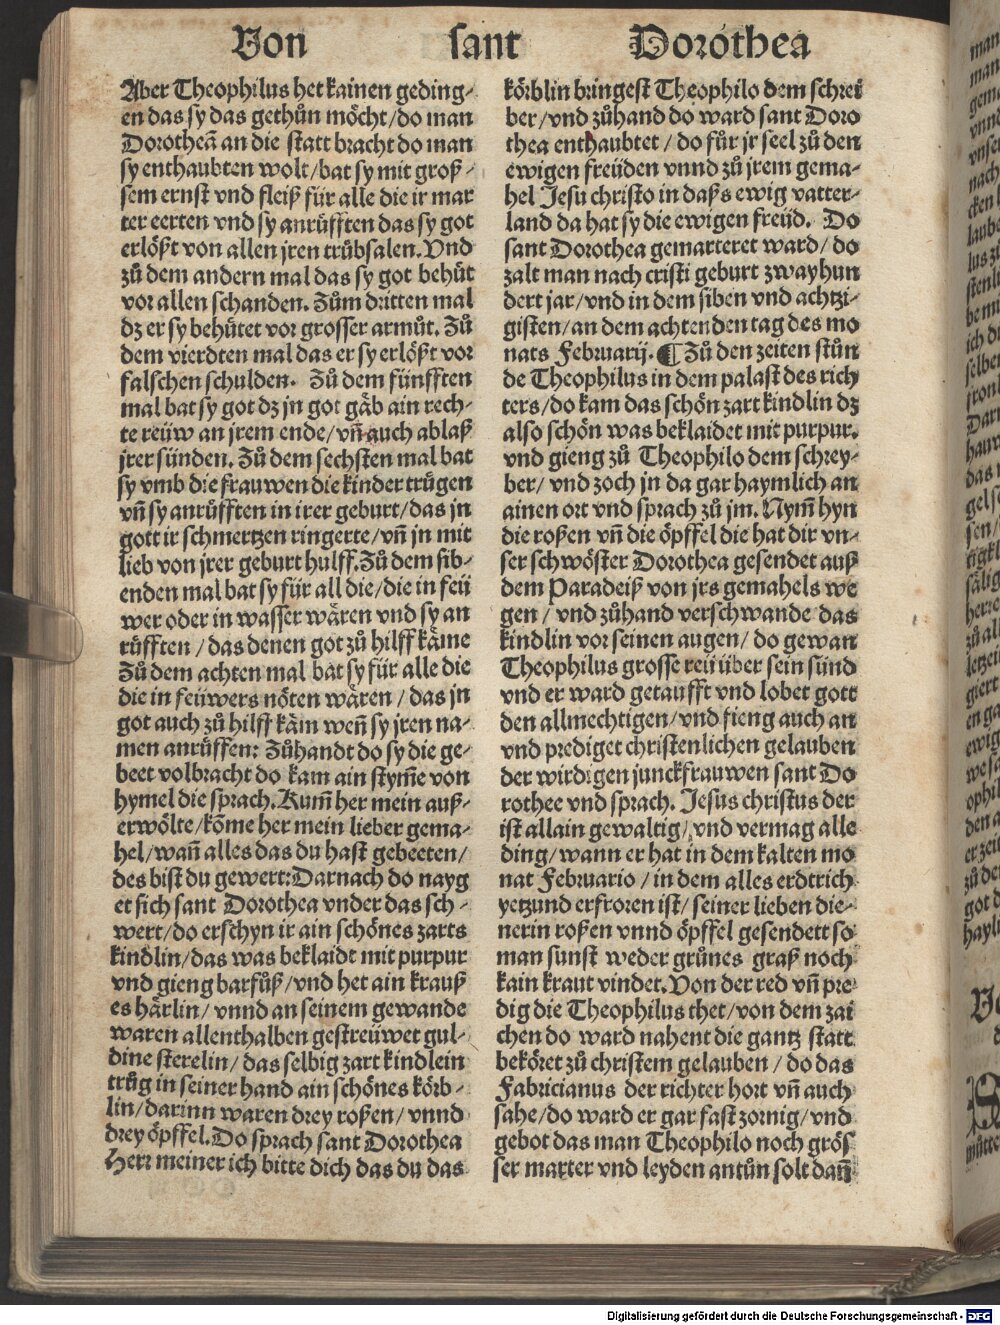 Von sant Dorothea
Aber Theophilus het kainen geding⸗
en das sy das gethůn möcht/do man
Dorotheā an die statt bracht do man
sy enthaubten wolt/bat sy mit groß⸗
sem ernst vnd fleiß für alle die ir mar
ter eerten vnd sy anrůfften das sy got
erlößt von allen jren trübsalen. Vnd
zů dem andern mal das sy got behüt
vor allen schanden. Zům dritten mal
dz er sy behütet vor grosser armůt. Zů
dem vierdten mal das er sy erlößt vor
falschen schulden. Zů dem fünfften
mal bat sy got dz jn got gäb ain rech⸗
te reüw an jrem ende/vn̄ auch ablaß
jrer sünden. Zů dem sechsten mal bat
sy vmb die frauwen die kinder trůgen
vn̄ sy anrůfften in irer geburt/das jn
gott ir schmertzen ringerte/vn̄ jn mit
lieb von jrer geburt hulff. Zů dem sib⸗
enden mal bat sy für all die/die in feü
wer oder in wasser wären vnd sy an
růfften/das denen got zů hilff käme
Zů dem achten mal bat sy für alle die
die in feüwers nöten wären/das jn
got auch zů hilff käm wen̄ sy jren na⸗
men anrůffen: Zůhandt do sy die ge⸗
beet volbracht do kam ain stym̄e von
hymel die sprach. Kum̄ her mein auß⸗
erwölte/kōme her mein lieber gema⸗
hel/wan̄ alles das du hast gebeeten/
des bist du gewert: Darnach do nayg
et sich sant Dorothea vnder das sch⸗
wert/do erschyn ir ain schönes zarts
kindlin/das was beklaidt mit purpur
vnd gieng barfůß/vnd het ain krauß
es härlin/vnnd an seinem gewande
waren allenthalben gestreüwet gul⸗
dine sterelin/das selbig zart kindlein
trůg in seiner hand ain schönes körb⸗
lin/darinn waren drey roßen/vnnd
drey öpffel. Do sprach sant Dorothea
Herr meiner ich bitte dich das du das
körblin bringest Theophilo dem schrei
ber/vnd zůhand do ward sant Doro
thea enthaubtet/do fůr jr seel zů den
ewigen freüden vnnd zů jrem gema⸗
hel Jesu christo in daß ewig vatter⸗
land da hat sy die ewigen freüd. Do
sant Dorothea gemarteret ward/do
zalt man nach cristi geburt zwayhun
dert jar/vnd in dem siben vnd achtzi⸗
gisten/an dem achtenden tag des mo
nats Februarij. ¶ Zů den zeiten stůn
de Theophilus in dem palast des rich
ters/do kam das schön zart kindlin dz
also schön was beklaidet mit purpur.
vnd gieng zů Theophilo dem schrey⸗
ber/vnd zoch jn da gar haymlich an
ainen ort vnd sprach zů jm. Nym̄ hyn
die roßen vn̄ die öpffel die hat dir vn⸗
ser schwöster Dorothea gesendet auß
dem Paradeiß von jrs gemahels we
gen/vnd zůhand verschwande das
kindlin vor seinen augen/do gewan
Theophilus grosse reü über sein sünd
vnd er ward getaufft vnd lobet gott
den allmechtigen/vnd fieng auch an
vnd prediget christenlichen gelauben
der wirdigen junckfrauwen sant Do
rothee vnd sprach. Jesus christus der
ist allain gewaltig/vnd vermag alle
ding/wann er hat in dem kalten mo
nat Februario/in dem alles erdtrich
yetzund erfroren ist/seiner lieben die⸗
nerin roßen vnnd öpffel gesendett so
man sunst weder grünes graß noch
kain kraut vindet. Von der red vn̄ pre
dig die Theophilus thet/von dem zai
chen do ward nahent die gantz statt
bekôret zů christem gelauben/do das
Fabricianus der richter hort vn̄ auch
sahe/do ward er gar fast zornig/vnd
gebot das man Theophilo noch grös
ser marter vnd leyden antůn solt dan̄
Digitalisierung gefördert durch die Deutsche Forschungsgemeinschaft - DFG